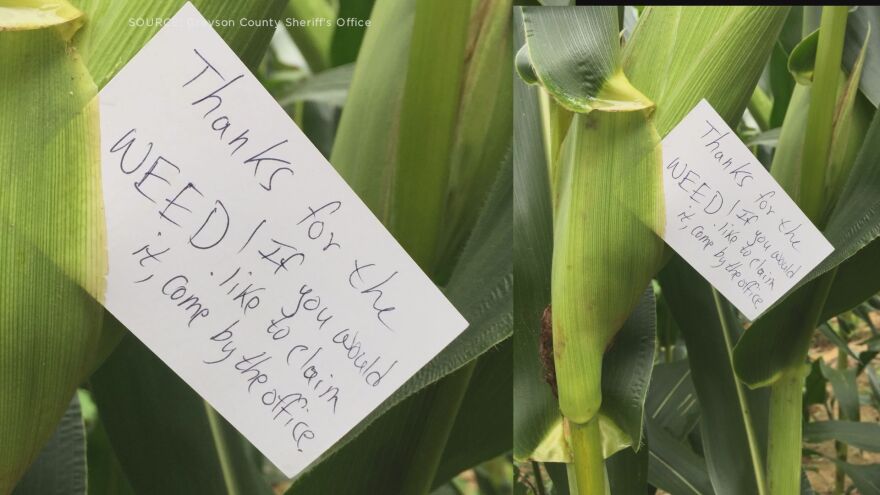 SOURCE: Grayson County Sheriff's Office
Thanks for the
WEED! If you would
like to claim
it, come by the office.
Thanks for the
WEED! If you would
like to claim
it, come by the office.